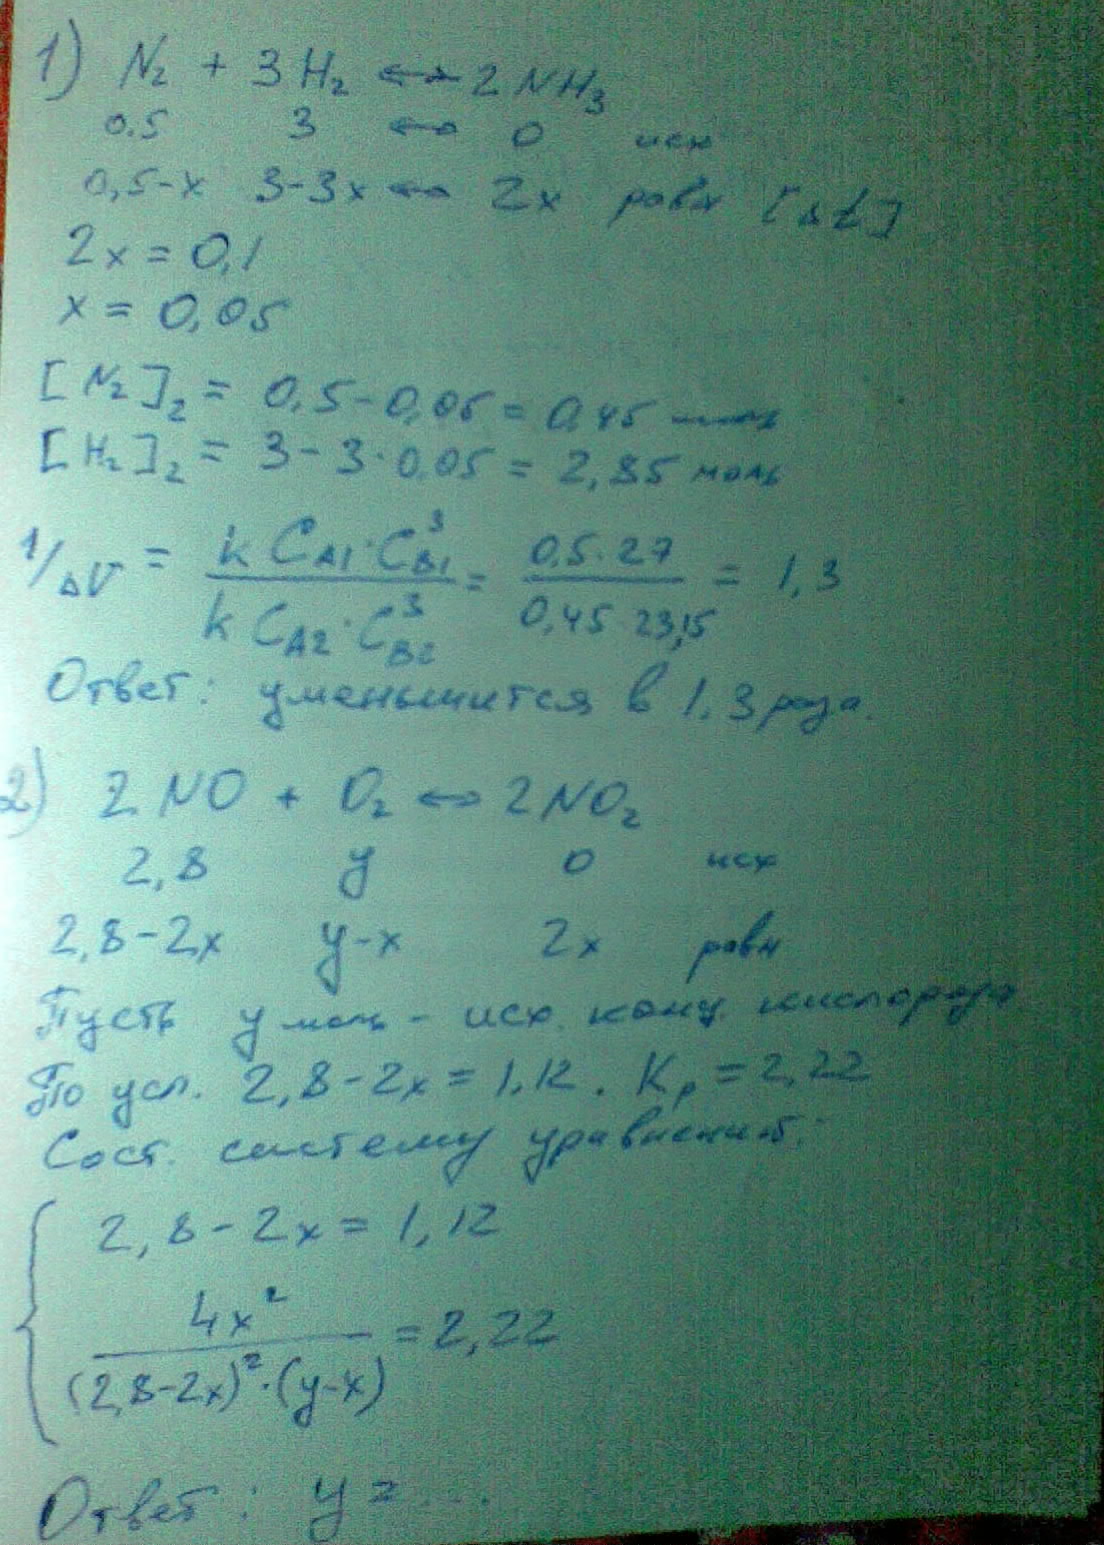 1) N₂ + 3H₂ ↔ 2NH₃
0.5 3 ↔ 0 исх
0,5-x 3-3x ↔ 2x равн [Δt]
2x = 0,1
x = 0,05
[N₂]₂ = 0,5-0,05 = 0,45 моль
[H₂]₂ = 3-3·0.05 = 2,85 моль
1/ΔV = k C_A1·C_B1³ / k C_A2·C_B2³ = 0,5·27 / 0,45·23,15 = 1,3
Ответ: уменьшится в 1,3 раза.
2) 2NO + O₂ ↔ 2NO₂
2,8 y 0 исх
2,8-2x y-x 2x равн
Пусть y моль - исх. конц. кислорода
По усл. 2,8-2x = 1,12. Kр = 2,22
Сост. систему уравнений:
2,8-2x = 1,12
4x² / (2,8-2x)²·(y-x) = 2,22
Ответ: y = ...